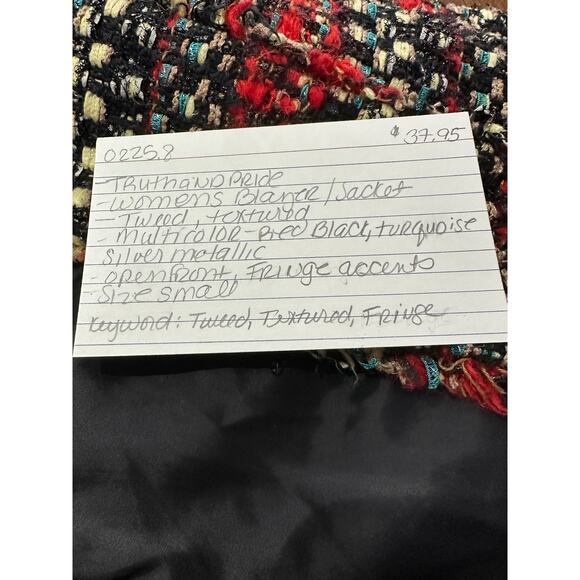 0225.8 $37.95
- TRUTHANDPRIDE
- WOMENS Blazer/Jacket
- Tweed, textured
- multicolor - Red Black, turquoise
silver metallic
- open front, Fringe accents
- Size small
Keyword: Tweed, Textured, Fringe